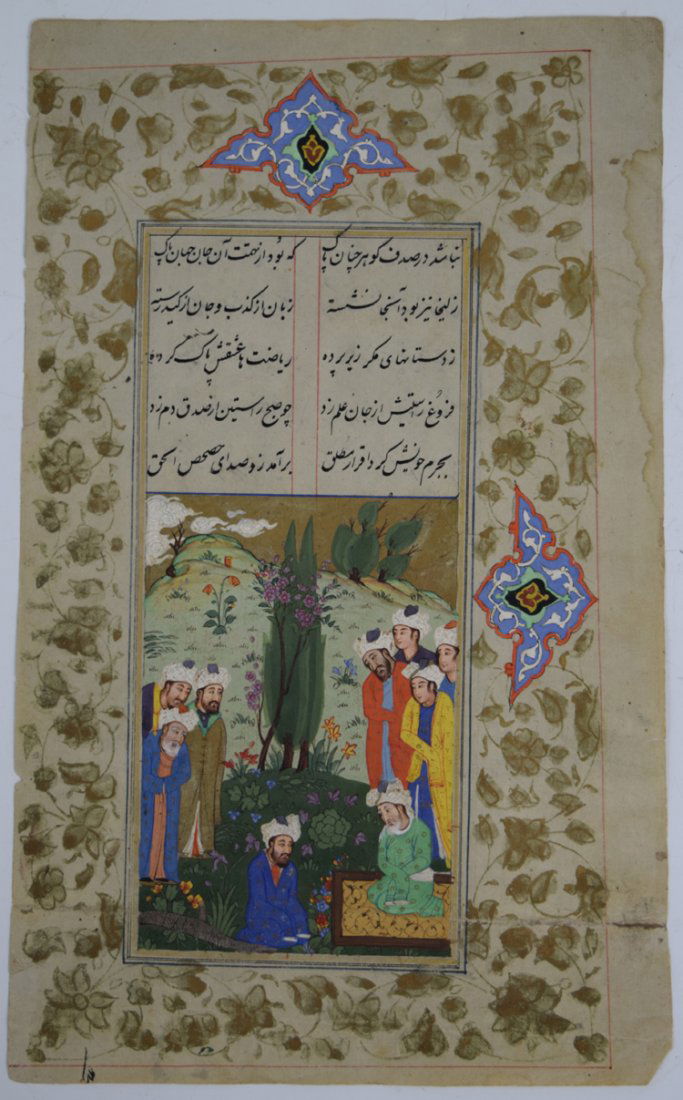 نباشد در صدف گوهر چنان پاک که بود از تهمت آن جان جهان پاک
زلیخا نیز بود آنجا نشسته زبان از کذب و جان از کید رسته
ز دستانهای مکر زیر پرده ریاضت های عشقش پاک کرده
فروغ راستیش از جان علم زد چو صبح راستین از صدق دم زد
بجرم خویش کرد اقرار مطلق برآمد زو صدای حصحص الحق